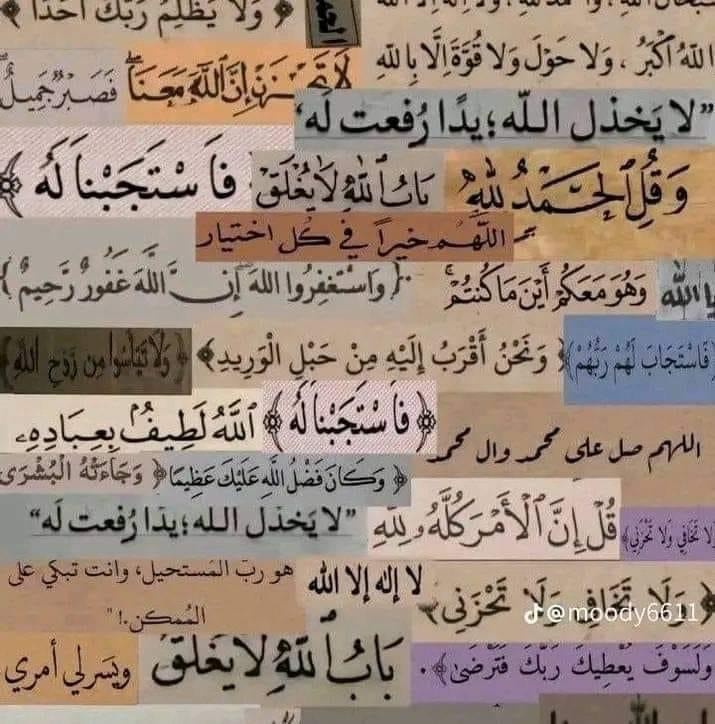 ﴿ وَلَا يَظْلِمُ رَبُّكَ أَحَدًا ﴾
اللهُ أَكْبَرُ ، وَلَا حَوْلَ وَلَا قُوَّةَ إِلَّا بِاللهِ
لَا تَحْزَنْ إِنَّ ٱللَّهَ مَعَنَا
فَصَبْرٌ جَمِيلٌ
"لا يَخذل اللّه؛ يدًا رُفعت له"
وَقُلِ ٱلْحَمْدُ لِلَّهِ
بَابُ ٱللَّهِ لَا يُغْلَقْ
فَاسْتَجَبْنَا لَهُ ﴾
اللّهُم خيراً في كل اختيار
يا اللّه
وَهُوَ مَعَكُمْ أَيْنَ مَا كُنْتُمْ
﴿ وَاسْتَغْفِرُوا اللهَ إِنَّ اللَّهَ غَفُورٌ رَّحِيمٌ ﴾
﴿فَاسْتَجَابَ لَهُمْ رَبُّهُمْ﴾
﴿ وَنَحْنُ أَقْرَبُ إِلَيْهِ مِنْ حَبْلِ الْوَرِيدِ ﴾
﴿ وَلَا تَيْأَسُوا مِن رَّوْحِ اللَّهِ ﴾
﴿ فَاسْتَجَبْنَا لَهُ ﴾
ٱللَّهُ لَطِيفٌۢ بِعِبَادِهِۦ
اللهم صل على محمد وال محمد
﴿ وَكَانَ فَضْلُ اللَّهِ عَلَيْكَ عَظِيمًا ﴾
﴿ وَجَاءَتْهُ الْبُشْرَى
قُلْ إِنَّ ٱلْأَمْرَ كُلَّهُۥ لِلَّهِ
"لا يَخذل الله؛ يدًا رُفعت له"
لا تَخَافِي وَلَا تَحْزَنِي﴾
لا إله إلا الله
هو ربّ المَستحيل، وانت تبكي على
المُمكن.! "
﴿وَلَا تَخَافِي وَلَا تَحْزَنِي﴾
@moody6611
وَلَسَوْفَ يُعْطِيكَ رَبُّكَ فَتَرْضَىٰ﴾ .
بَابُ ٱللَّهِ لَا يُغْلَقْ
ويَسرلي أمري